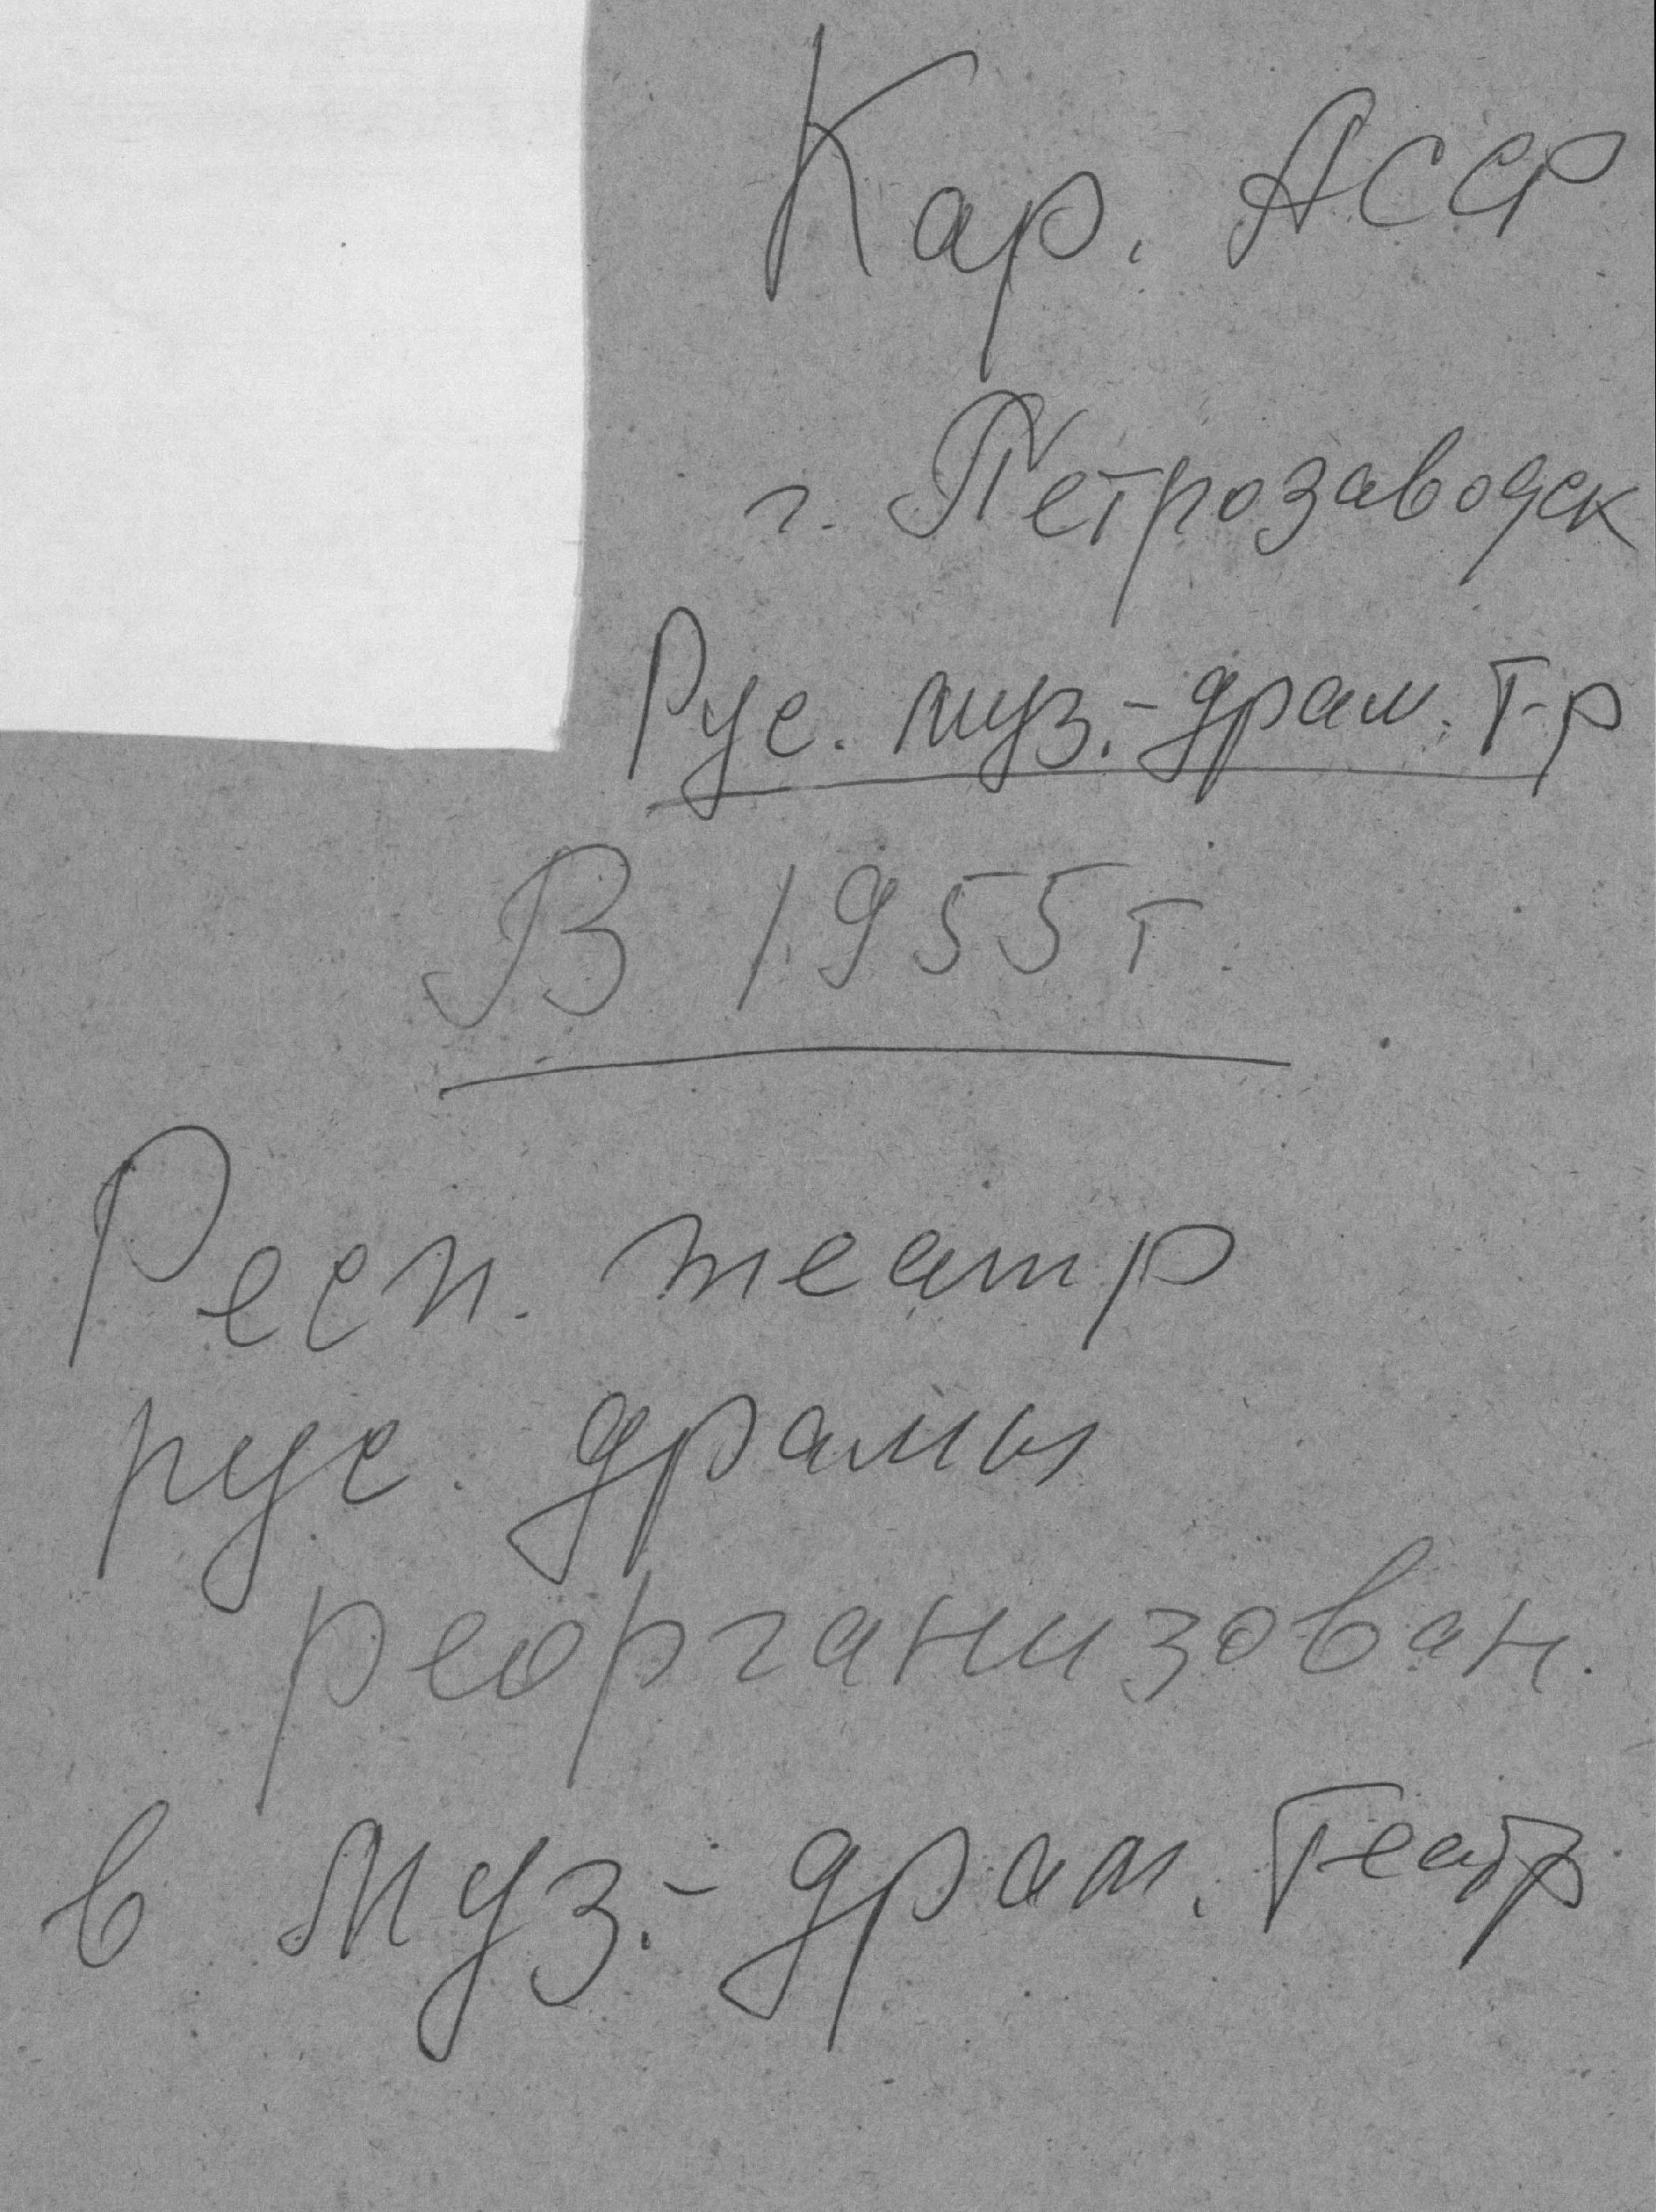 Кар. АССР
г. Петрозаводск
Рус. муз.-драм. т-р
В 1955 г.
Респ. театр
рус. драмы
реорганизован.
в муз.-драм. театр